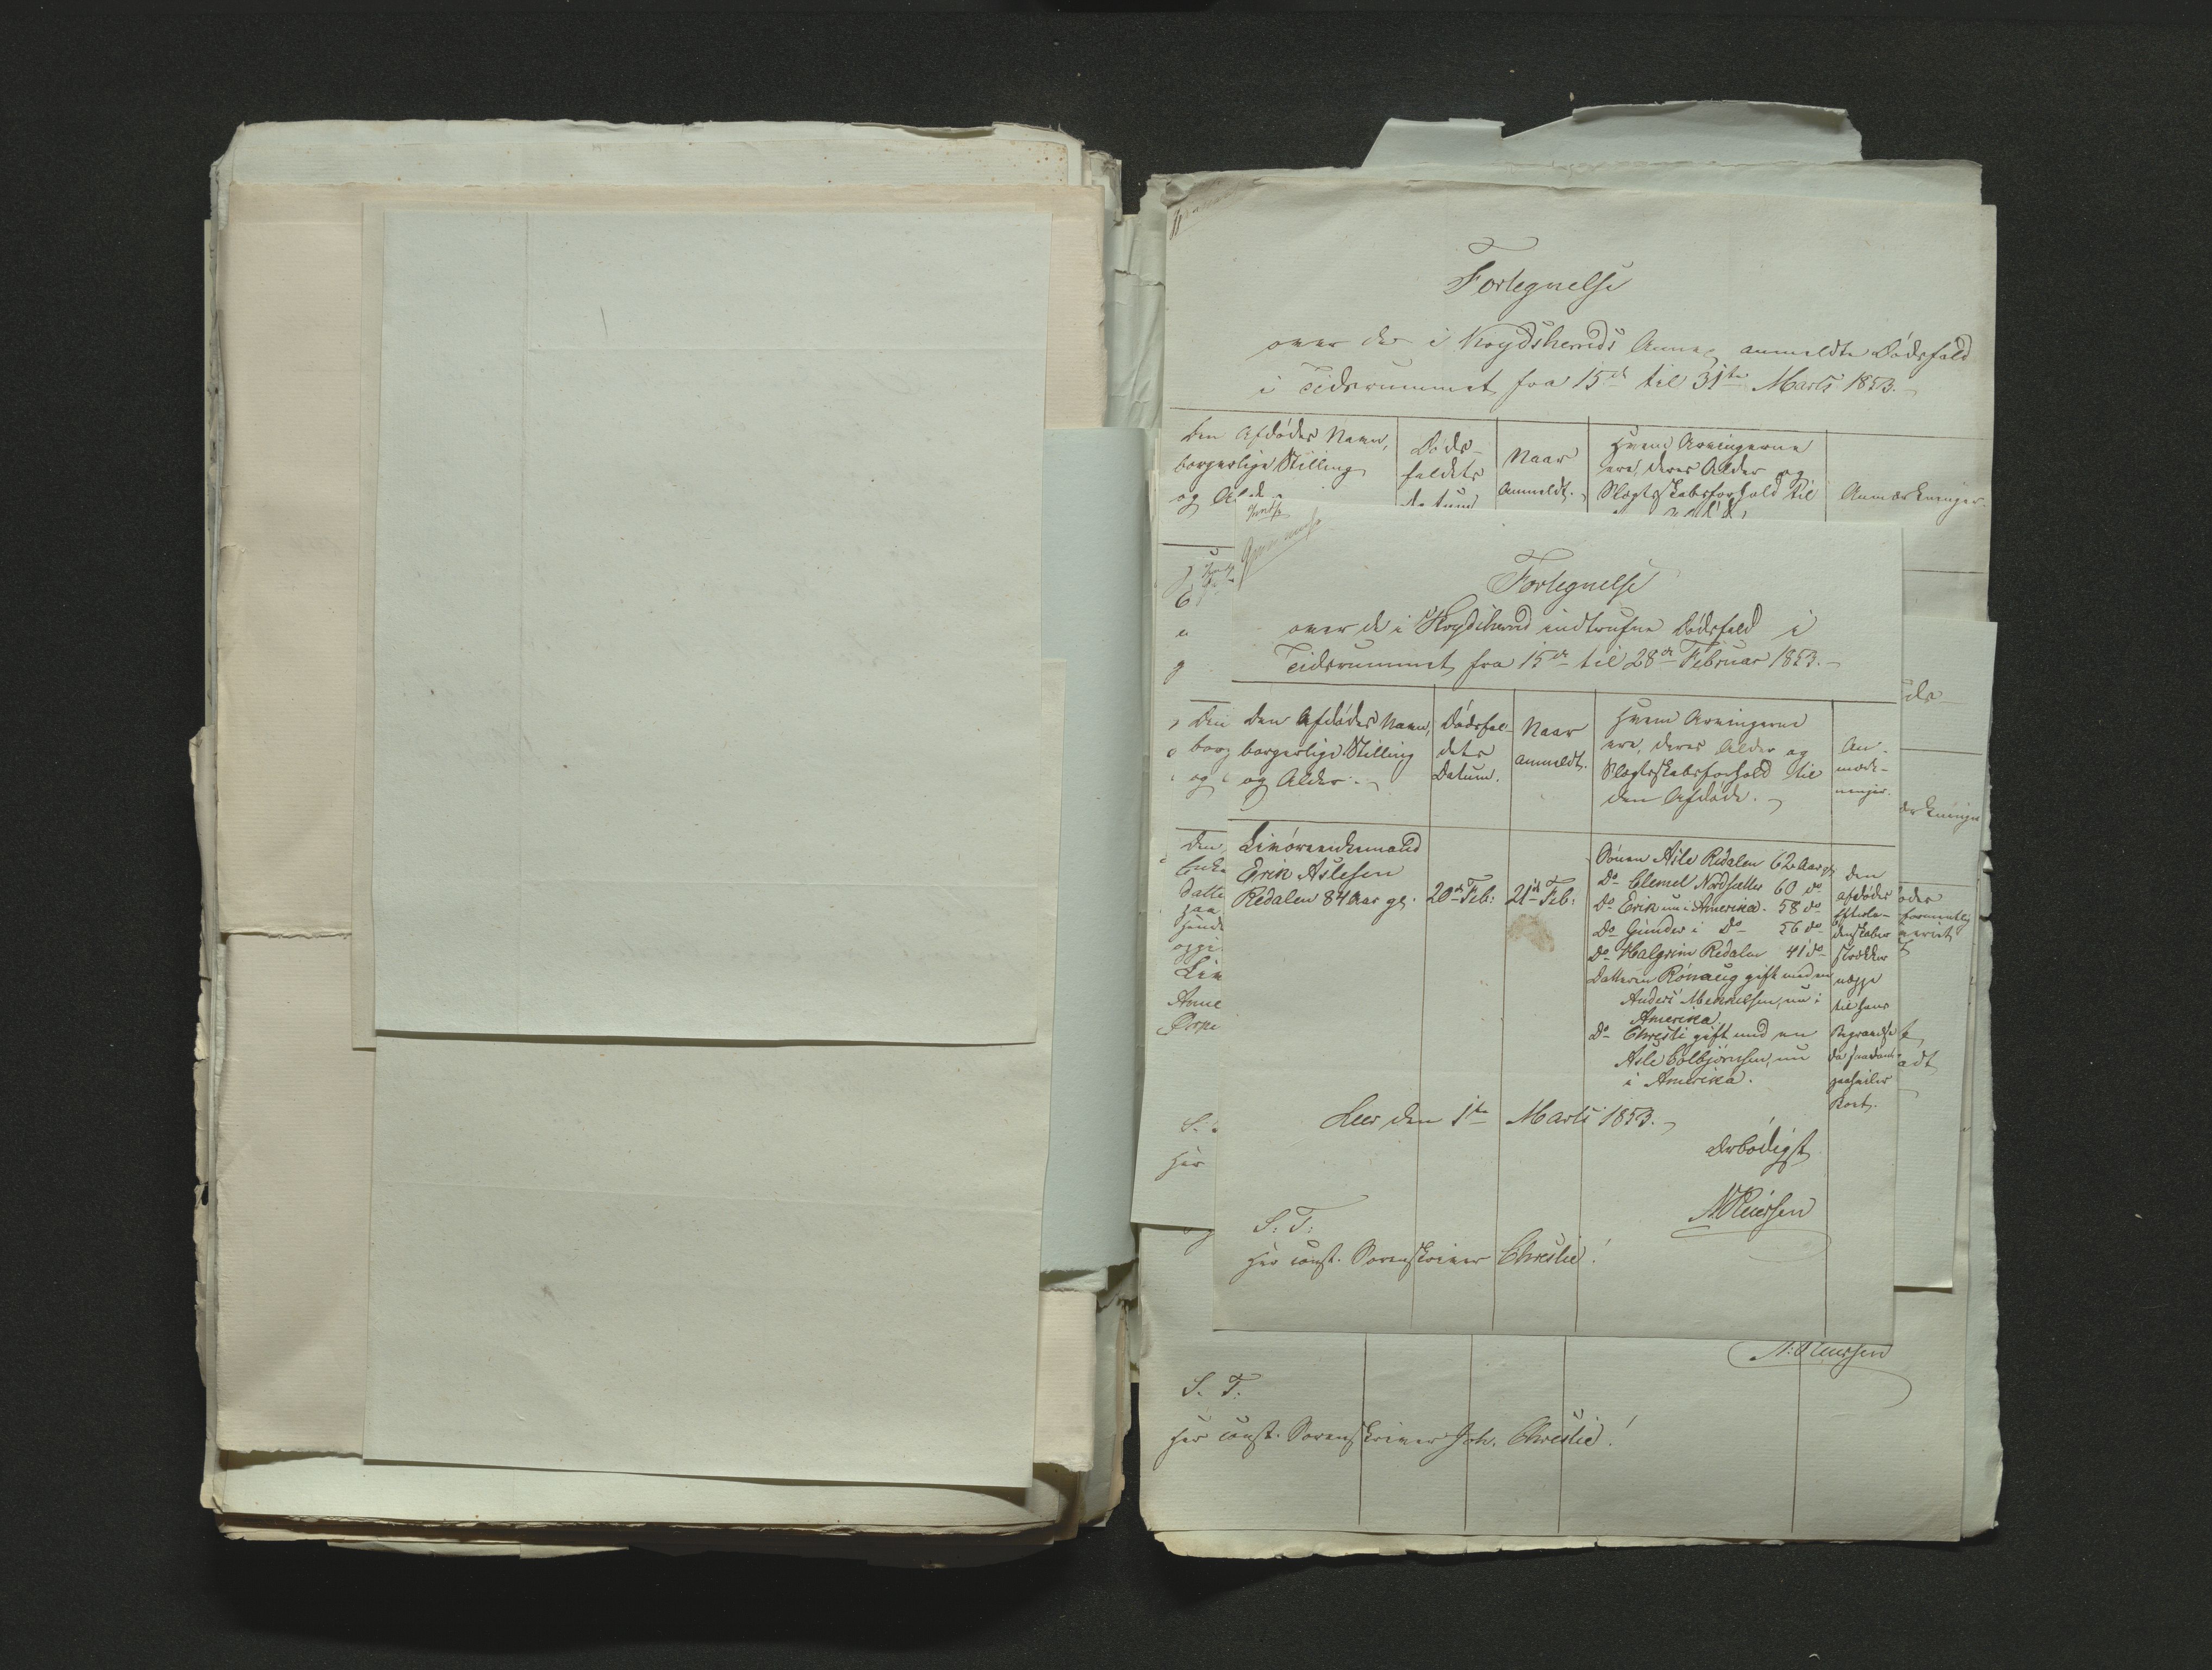 Fortegnelse
over de i Krydsherreds Annex anmeldte Dødsfald
i Tidsrummet fra 15de til 31te Marts 1853.
Den Afdødes Navn,
borgerlige Stilling
og
Døds-
faldets
Datum
Naar
Anmeldt.
Hvem Arvingerne
ere, deres Alder og
Slægtskabsforhold til
Anmærkninger.
Fortegnelse
over de i Krydsherred indtrufne Dødsfald i
Tidsrummet fra 15de til 28de Februar 1853.
Den Afdødes Navn,
borgerlige Stilling
og Alder.
Dødsfal-
dets
Datum.
Naar
anmeldt.
Hvem Arvingerne
ere, deres Alder og
Slægtskabsforhold til
den Afdøde.
An-
mærk-
ninger.
Livøreenkemand
Erik Aslesen
Redalen 84 Aar gl.
20de Feb:
21de Feb:
Sønnen Asle Redalen 62 Aar gl.
Do Clemet Nordsætter 60 do
Do Erik nu i Amerika. 58 do
Do Gunder i Do 56 do
Do Halgrim Redalen 41 do
Datteren Rønaug gift med en
Anders Mekkelsen, nu i
Amerika.
Do Christi gift med en
Asle Colbjørnsen, nu
i Amerika.
Den
afdødes
Efterla-
denskaber
strækker
neppe
til hans
Begravelse
Leer den 1te Marts 1853.
Ærbødigst
S. T.
Her const. Sorenskriver Christie!
S. T.
Her const. Sorenskriver Joh. Christie!